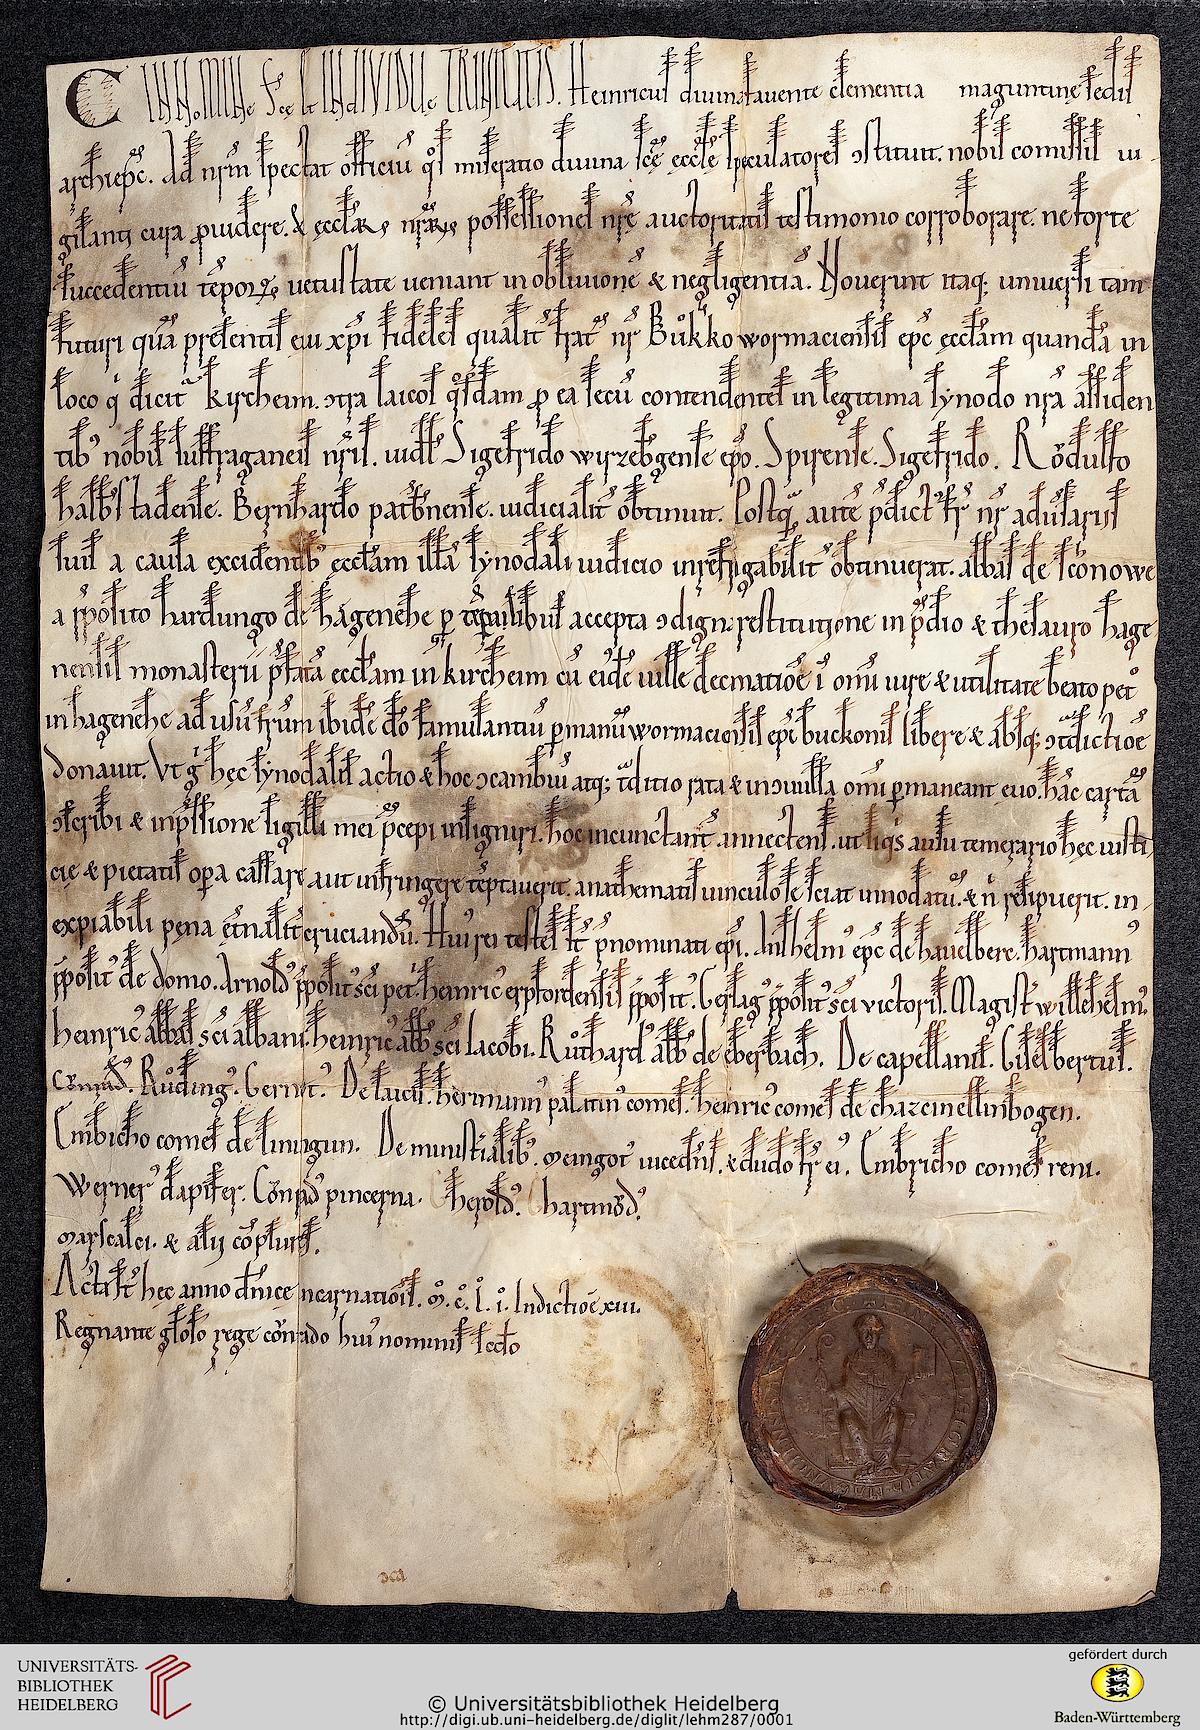 C IN NOMINE sce et INDIVIDUE TRINITATIS. Heinricus divina favente clementia maguntine sedis
archiepc. Ad nrm spectat officiu qs miseratio divina sce eccle speculatores ɔstituit. nobis comissis vi-
gilanti cura pvidere. & ecclaꝝ nraꝝ possessiones nre auctoritatis testimonio corroborare. ne forte
succedentiu tepoꝝ vetustate veniant in oblivione & negligentia. Noverint itaq; universi tam
futuri qua presentis evi xpi fideles qualit frat nr Bůkko wormaciensis epc ecclam quanda in
loco q dicit kircheim. ɔtra laicos qsdam p ea secu contendentes in legitima synodo nra assiden
tib nobis suffraganeis nris. vidl Sigefrido wirzebgense epo. Spirense. Sigefrido. Rodulfo
halbstadense. Bernhardo patbnense. iudicialit obtinuit. Postq aute pdict fr nr adusariis
suis a causa excidentib ecclam illa synodali iudicio inrefrigabilit obtinuerat. abbas de sconowe
a pposito hardungo de hagenehe p tepalibus accepta ɔdigna restitutione in pdio & thesauro hage
nensis monasterii pfata ecclam in kircheim cu eide ville decimatioe i omi iure & utilitate beato pet
in hagenehe ad usu frum ibide do famulantiu p manu wormaciensis epi buckonis libere & absq; ɔtdictioe
donavit. Ut g hec synodalis actio & hoc ɔcambiu atq; tditio rata & inɔvulsa omi pmaneant evo. hac carta
ɔscribi & inpssione sigilli mei pcepi insigniri. hoc incunctant annectens. ut siqs ausu temerario hec iusti
cie & pietatis opa cassare aut infringere teptaverit. anathematis vinculo se sciat innodatu. & n resipuerit. in-
expiabili pena etnalit cruciandu. Hui rei testes st pnominati epi. Anshelm epc de havelberc. hartmann
pposit de domo. Arnold pposit sci pet. heinric erpfordensis pposit. Gerlag pposit sci victoris. Magist willehelm.
heinric abbas sci albani. heinric abb sci Iacobi. Růthard abb de eberbach. De capellanis. Giselbertus.
Conrad. Růding. Gernot. De laicis. hermann palatin comes. heinric comes de chazeinellinbogen.
Embicho comes de liningun. De ministialib. meingot vicedns. & dudo fr ei. Embricho comes reni.
Werner dapifer. Conrad pincerna. Cherold. Chartmod.
marscalci. & alii coplures.
Acta st hec anno dnice incarnatiois. m. c. l. i. Indictioe xiiii.
Regnante glöso rege conrado hui nominis secdo
UNIVERSITÄTS-
BIBLIOTHEK
HEIDELBERG
© Universitätsbibliothek Heidelberg
http://digi.ub.uni-heidelberg.de/diglit/lehm287/0001
gefördert durch
Baden-Württemberg